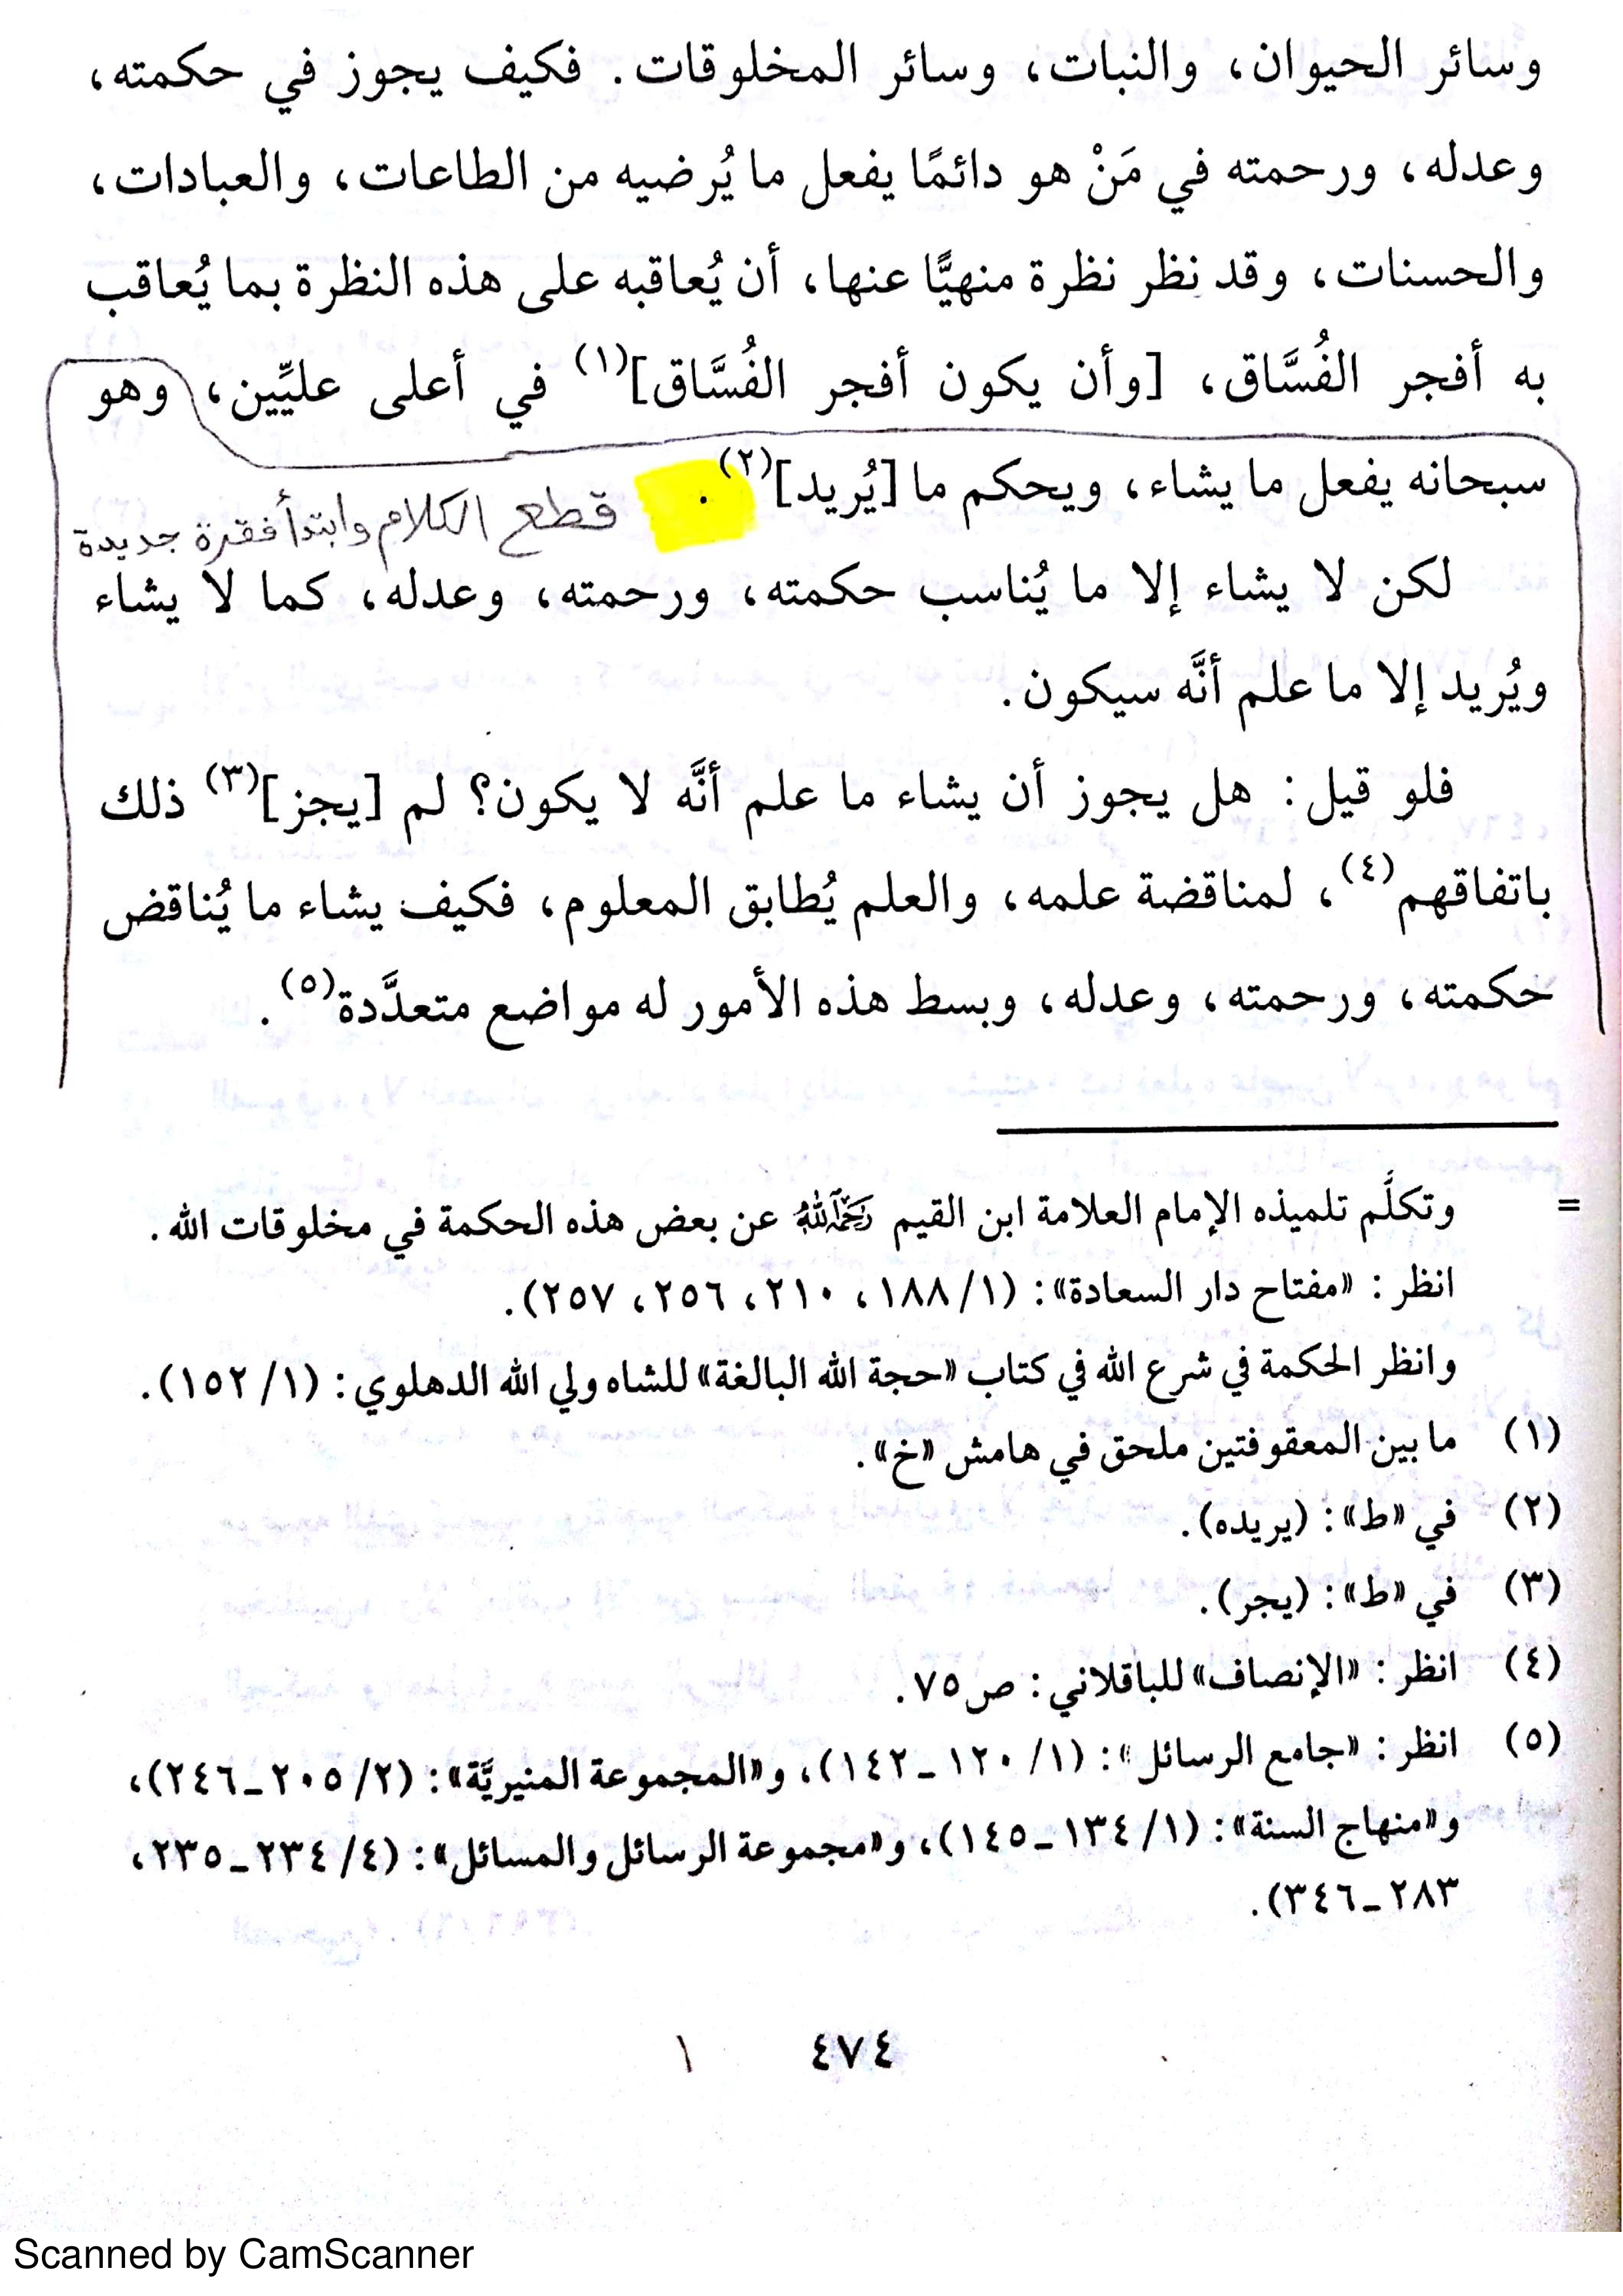 وسائر الحيوان، والنبات، وسائر المخلوقات. فكيف يجوز في حكمته،
وعدله، ورحمته في مَنْ هو دائمًا يفعل ما يُرضيه من الطاعات، والعبادات،
والحسنات، وقد نظر نظرة منهيًّا عنها، أن يُعاقبه على هذه النظرة بما يُعاقب
به أفجر الفُسَّاق، [وأن يكون أفجر الفُسَّاق](١) في أعلى عليِّين، وهو
سبحانه يفعل ما يشاء، ويحكم ما [يُريد](٢).
قطع الكلام وابتدأ فقرة جديدة
لكن لا يشاء إلا ما يُناسب حكمته، ورحمته، وعدله، كما لا يشاء
ويُريد إلا ما علم أنَّه سيكون.
فلو قيل: هل يجوز أن يشاء ما علم أنَّه لا يكون؟ لم [يجز](٣) ذلك
باتفاقهم(٤)، لمناقضة علمه، والعلم يُطابق المعلوم، فكيف يشاء ما يُناقض
حكمته، ورحمته، وعدله، وبسط هذه الأمور له مواضع متعدَّدة(٥).
= وتكلَّم تلميذه الإمام العلامة ابن القيم رحمه الله عن بعض هذه الحكمة في مخلوقات الله.
انظر: «مفتاح دار السعادة»: (١/ ١٨٨، ٢١٠، ٢٥٦، ٢٥٧).
وانظر الحكمة في شرع الله في كتاب «حجة الله البالغة» للشاه ولي الله الدهلوي: (١/ ١٥٢).
(١) ما بين المعقوفتين ملحق في هامش «خ».
(٢) في «ط»: (يريده).
(٣) في «ط»: (يجر).
(٤) انظر: «الإنصاف» للباقلاني: ص٧٥.
(٥) انظر: «جامع الرسائل»: (١/ ١٢٠ـ١٤٢)، و«المجموعة المنيريَّة»: (٢/ ٢٠٥ـ٢٤٦)،
و«منهاج السنة»: (١/ ١٣٤ـ١٤٥)، و«مجموعة الرسائل والمسائل»: (٤/ ٢٣٤ـ٢٣٥،
٢٨٣ـ٣٤٦).
٤٧٤ ١
Scanned by CamScanner